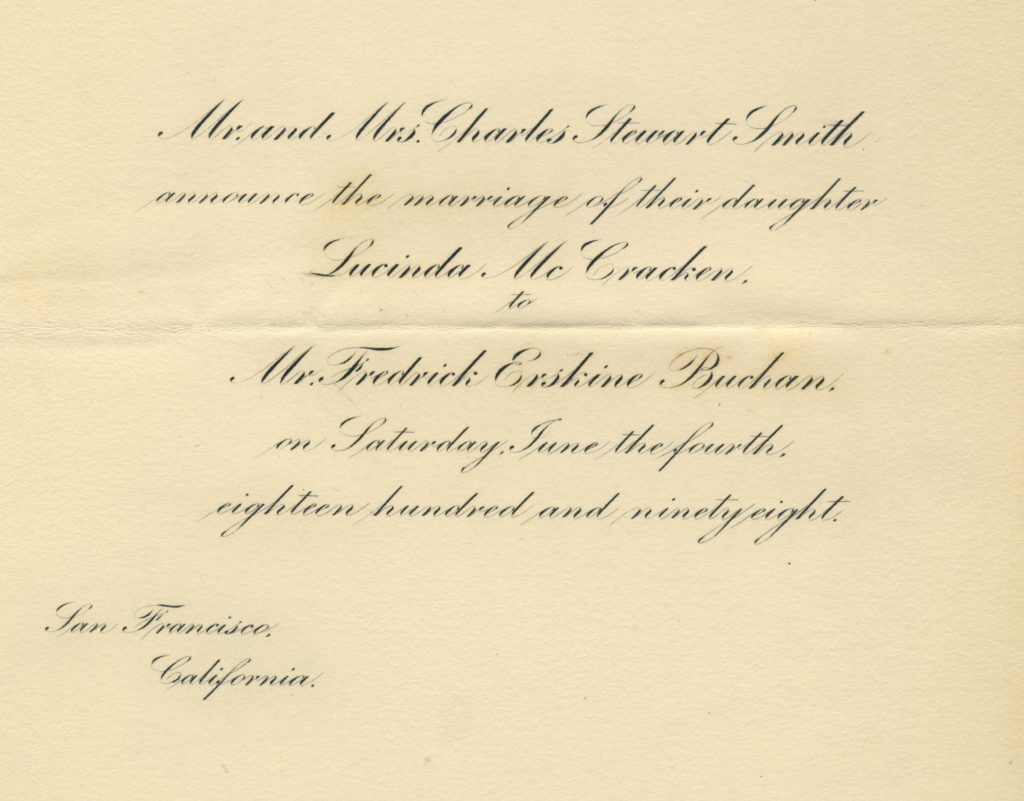 Mr. and Mrs. Charles Stewart Smith
announce the marriage of their daughter
Lucinda Mc Cracken,
to
Mr. Fredrick Erskine Buchan,
on Saturday, June the fourth,
eighteen hundred and ninety eight.
San Francisco,
California.